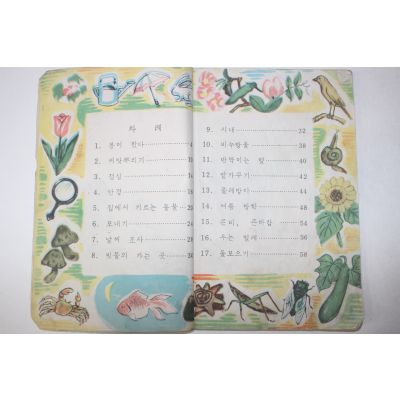 차 례
1. 봄이 왔다 4
2. 씨앗뿌리기
3. 점심
4. 안경
5. 집에서 기르는 동물
6. 모내기 24
7. 날씨 조사 28
8. 빗물의 가는 곳 30
9. 시내 32
10. 비누방울 38
11. 반짝이는 빛 40
12. 밭가꾸기 42
13. 물레방아 44
14. 여름 방학 48
15. 큰비, 큰바람 54
16. 우는 벌레 56
17. 돌모으기 58